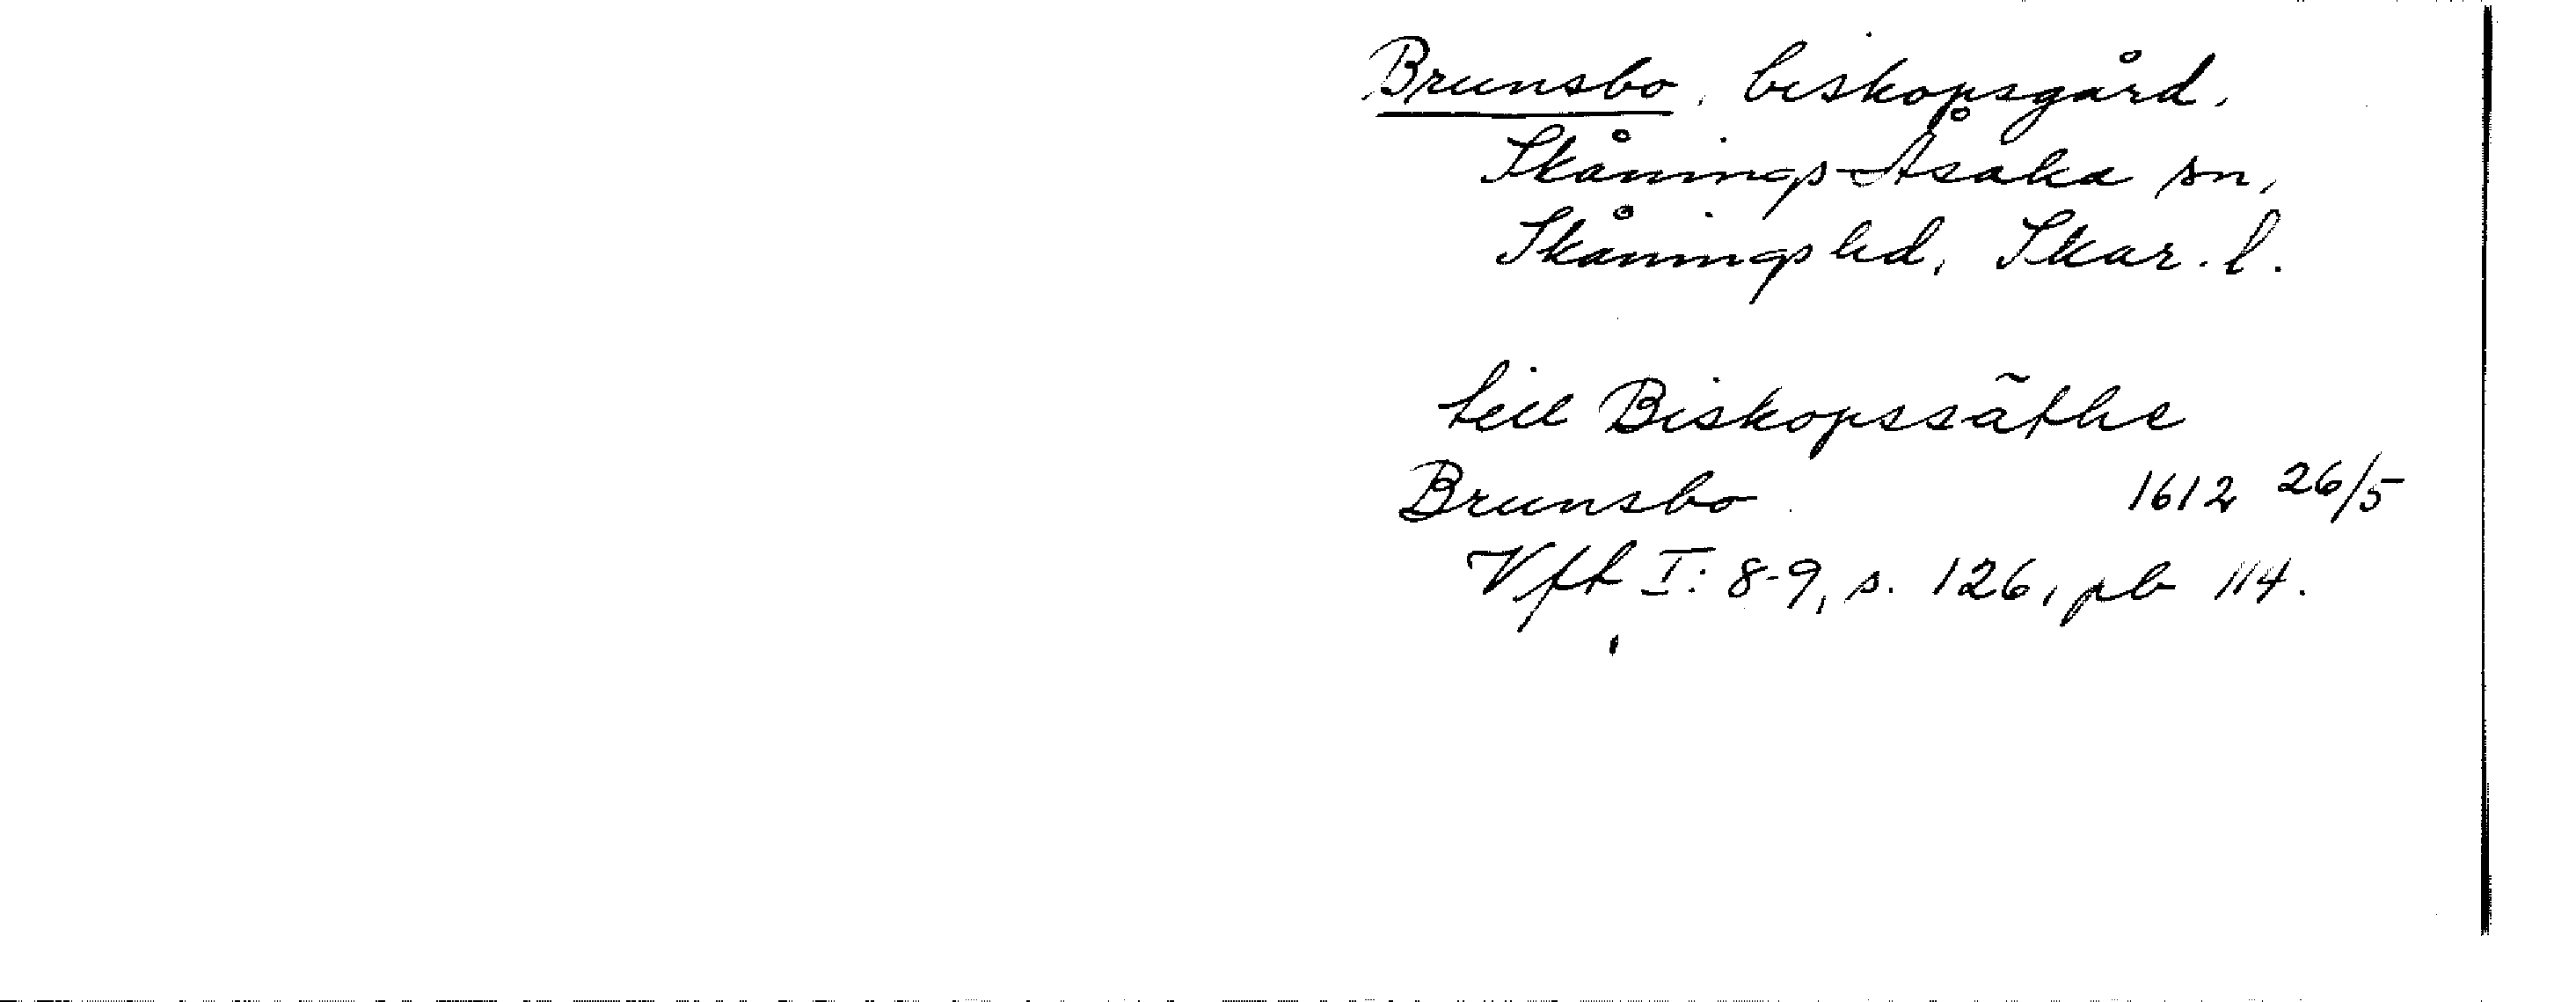 Brunsbo, biskopsgård.
Skånings-Åsaka sn,
Skånings hd, Skar. l.
till Biskopssäthe
Brunsbo 1612 26/5
Vft I: 8-9, s. 126, pb 114.